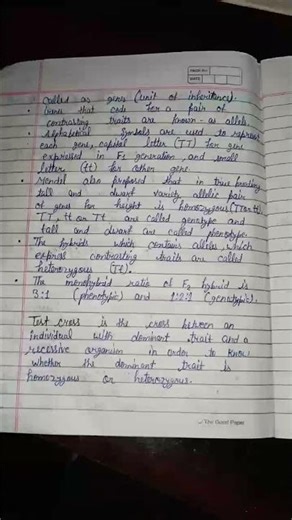 PAGE No.
DATE
called as gene (unit of inheritance).
• Genes that code for a pair of
contrasting traits are known as allele.
• Alphabetical symbols are used to represe
each gene, capital letter (TT) for gene
expressed in F1 generation, and small
letter (tt) for other gene.
• Mendel also proposed that in true breeding
tall and dwarf variety allelic pair
of gene for height is homozygous (TT or tt)
TT, tt or Tt are called genotype and
tall and dwarf are called phenotype.
• The hybrids which contains alleles which
express contrasting traits are called
heterozygous (Tt).
• The monohybrid ratio of F2 hybrid is
3:1 (phenotypic) and 1:2:1 (genotypic).
Test cross is the cross between an
individual with dominant trait and a
recessive organism in order to know
whether the dominant trait is
homozygous or heterozygous.
The Good Paper